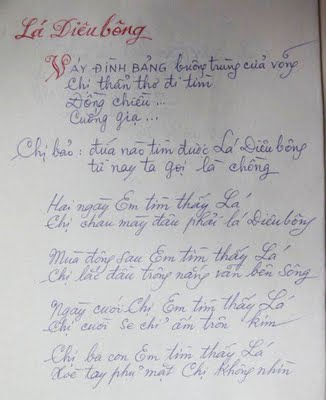 Lá Diêu bông
Váy ĐÌNH BẢNG buông trùng cửa võng
Chị thẩn thơ đi tìm
Đồng chiều ...
Cuống giạ ...
Chị bảo : đứa nào tìm được Lá Diêu bông
từ nay ta gọi là chồng
Hai ngày Em tìm thấy Lá
Chị chau mày đâu phải lá Diêu bông
Mùa đông sau Em tìm thấy Lá
Chị lắc đầu trông nắng vãn bên sông
Ngày cưới Chị Em tìm thấy Lá
Chị cười se chỉ ấm trôn Kim
Chị ba con Em tìm thấy Lá
Xoè tay phủ mặt Chị không nhìn